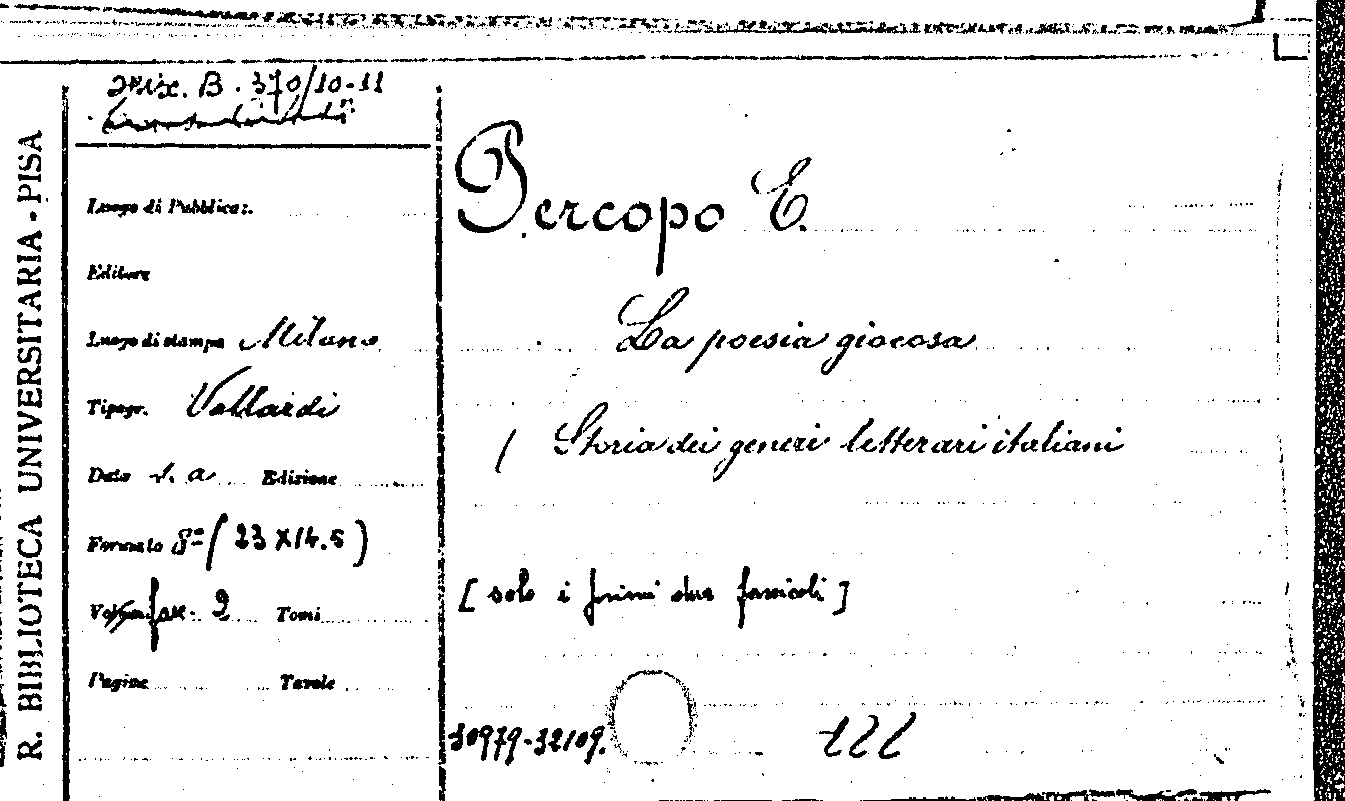 R. BIBLIOTECA UNIVERSITARIA - PISA
Mix. B. 370/10-11
Luogo di Pubblicaz.
Editore
Luogo di stampa Milano
Tipogr. Vallardi
Data s. a Edizione
Formato 8° (23 X 14.5)
fasc. 2 Tomi
Pagine Tavole
Percopo E.
La poesia giocosa
( Storia dei generi letterari italiani
[ solo i primi due fascicoli ]
30979-32109.